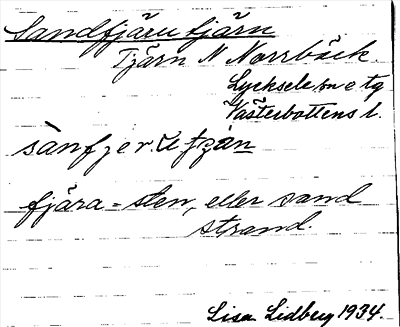 Sandfjäru tjärn
Tjärn N Norrbäck.
Lycksele sn o tg
Västerbottens l.
fjära = sten, eller sand
strand.
Lisa Lidberg 1934.